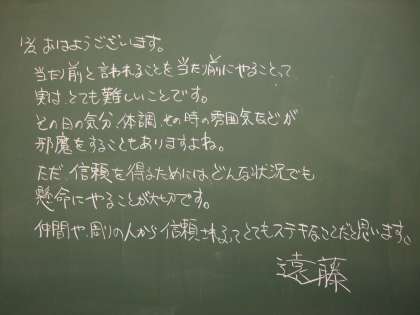 おはようございます。
当たり前と言われることを当たり前にやることって
実は、とても難しいことです。
その日の気分、体調、その時の雰囲気などが
邪魔をすることもありますよね。
ただ、信頼を得るためにはどんな状況でも
懸命にやることが大切です。
仲間や、周りの人から信頼されるってとてもステキなことだと思います。
遠藤